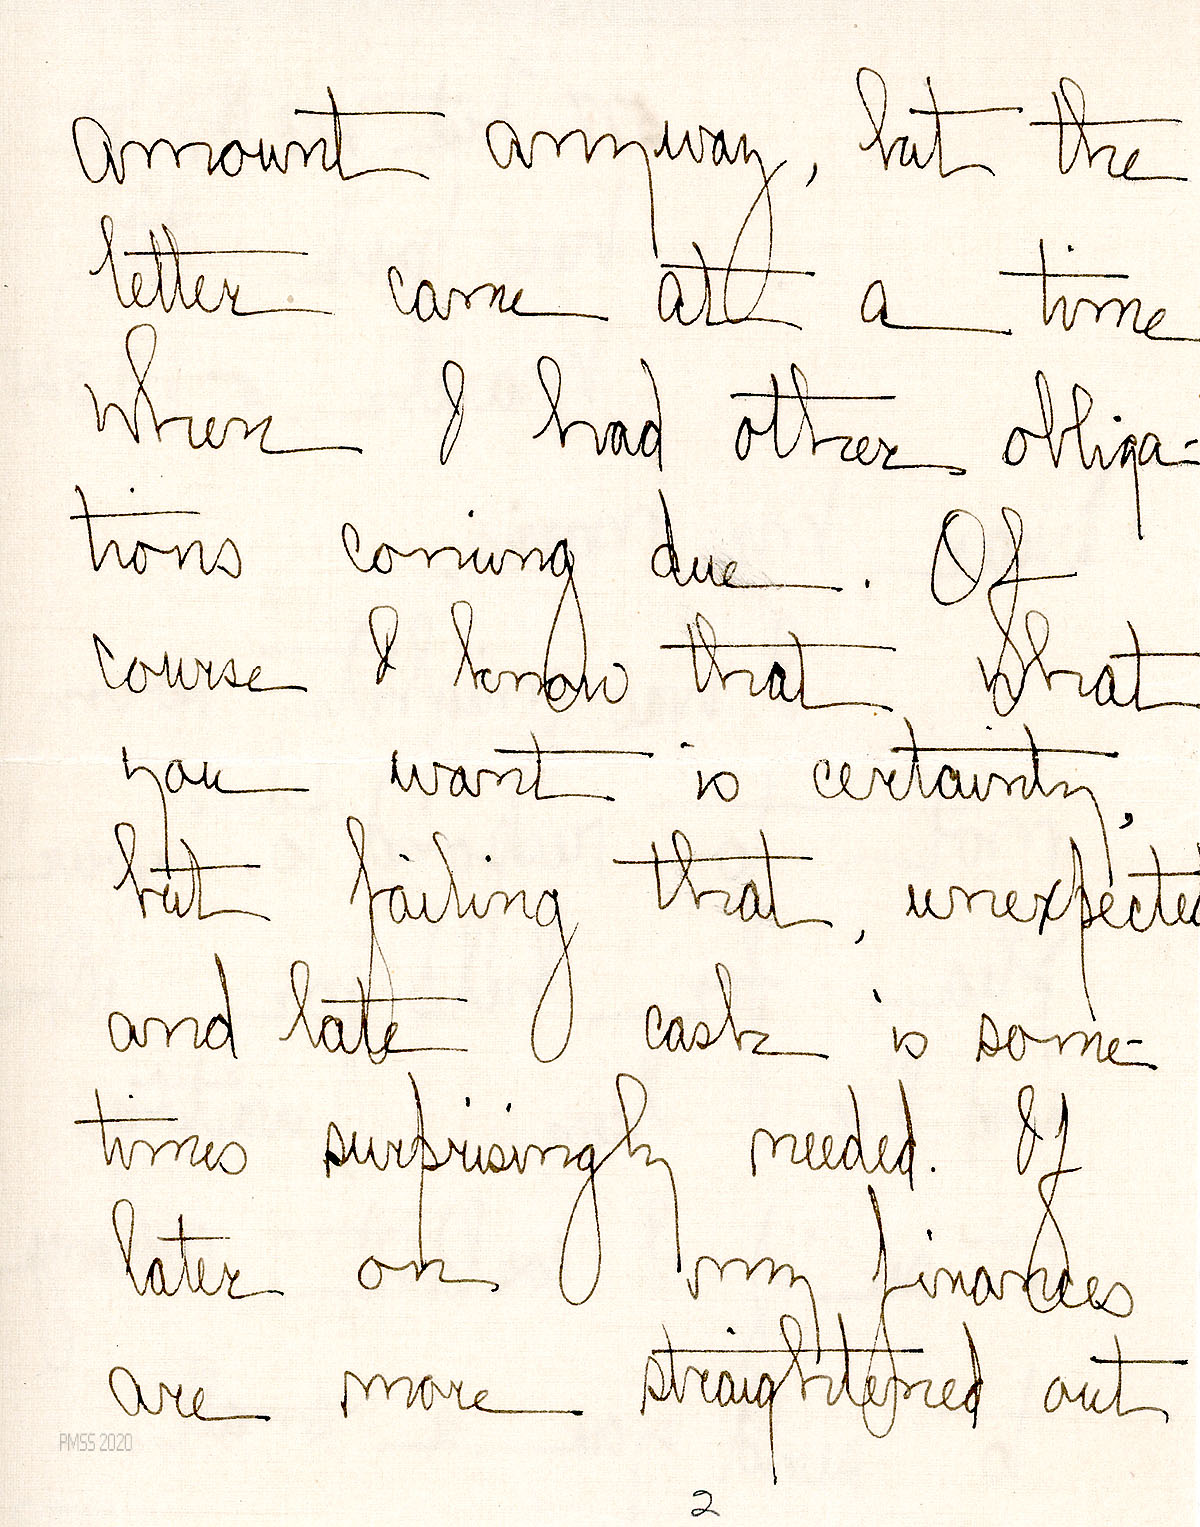 amount anyway, but the
letter came at a time
when I had other obliga-
tions coming due. Of
course I know that what
you want is certainty,
but failing that, unexpected
and late cash is some-
times surprisingly needed. If
later on my finances
are more straightened out
PMSS 2020
2